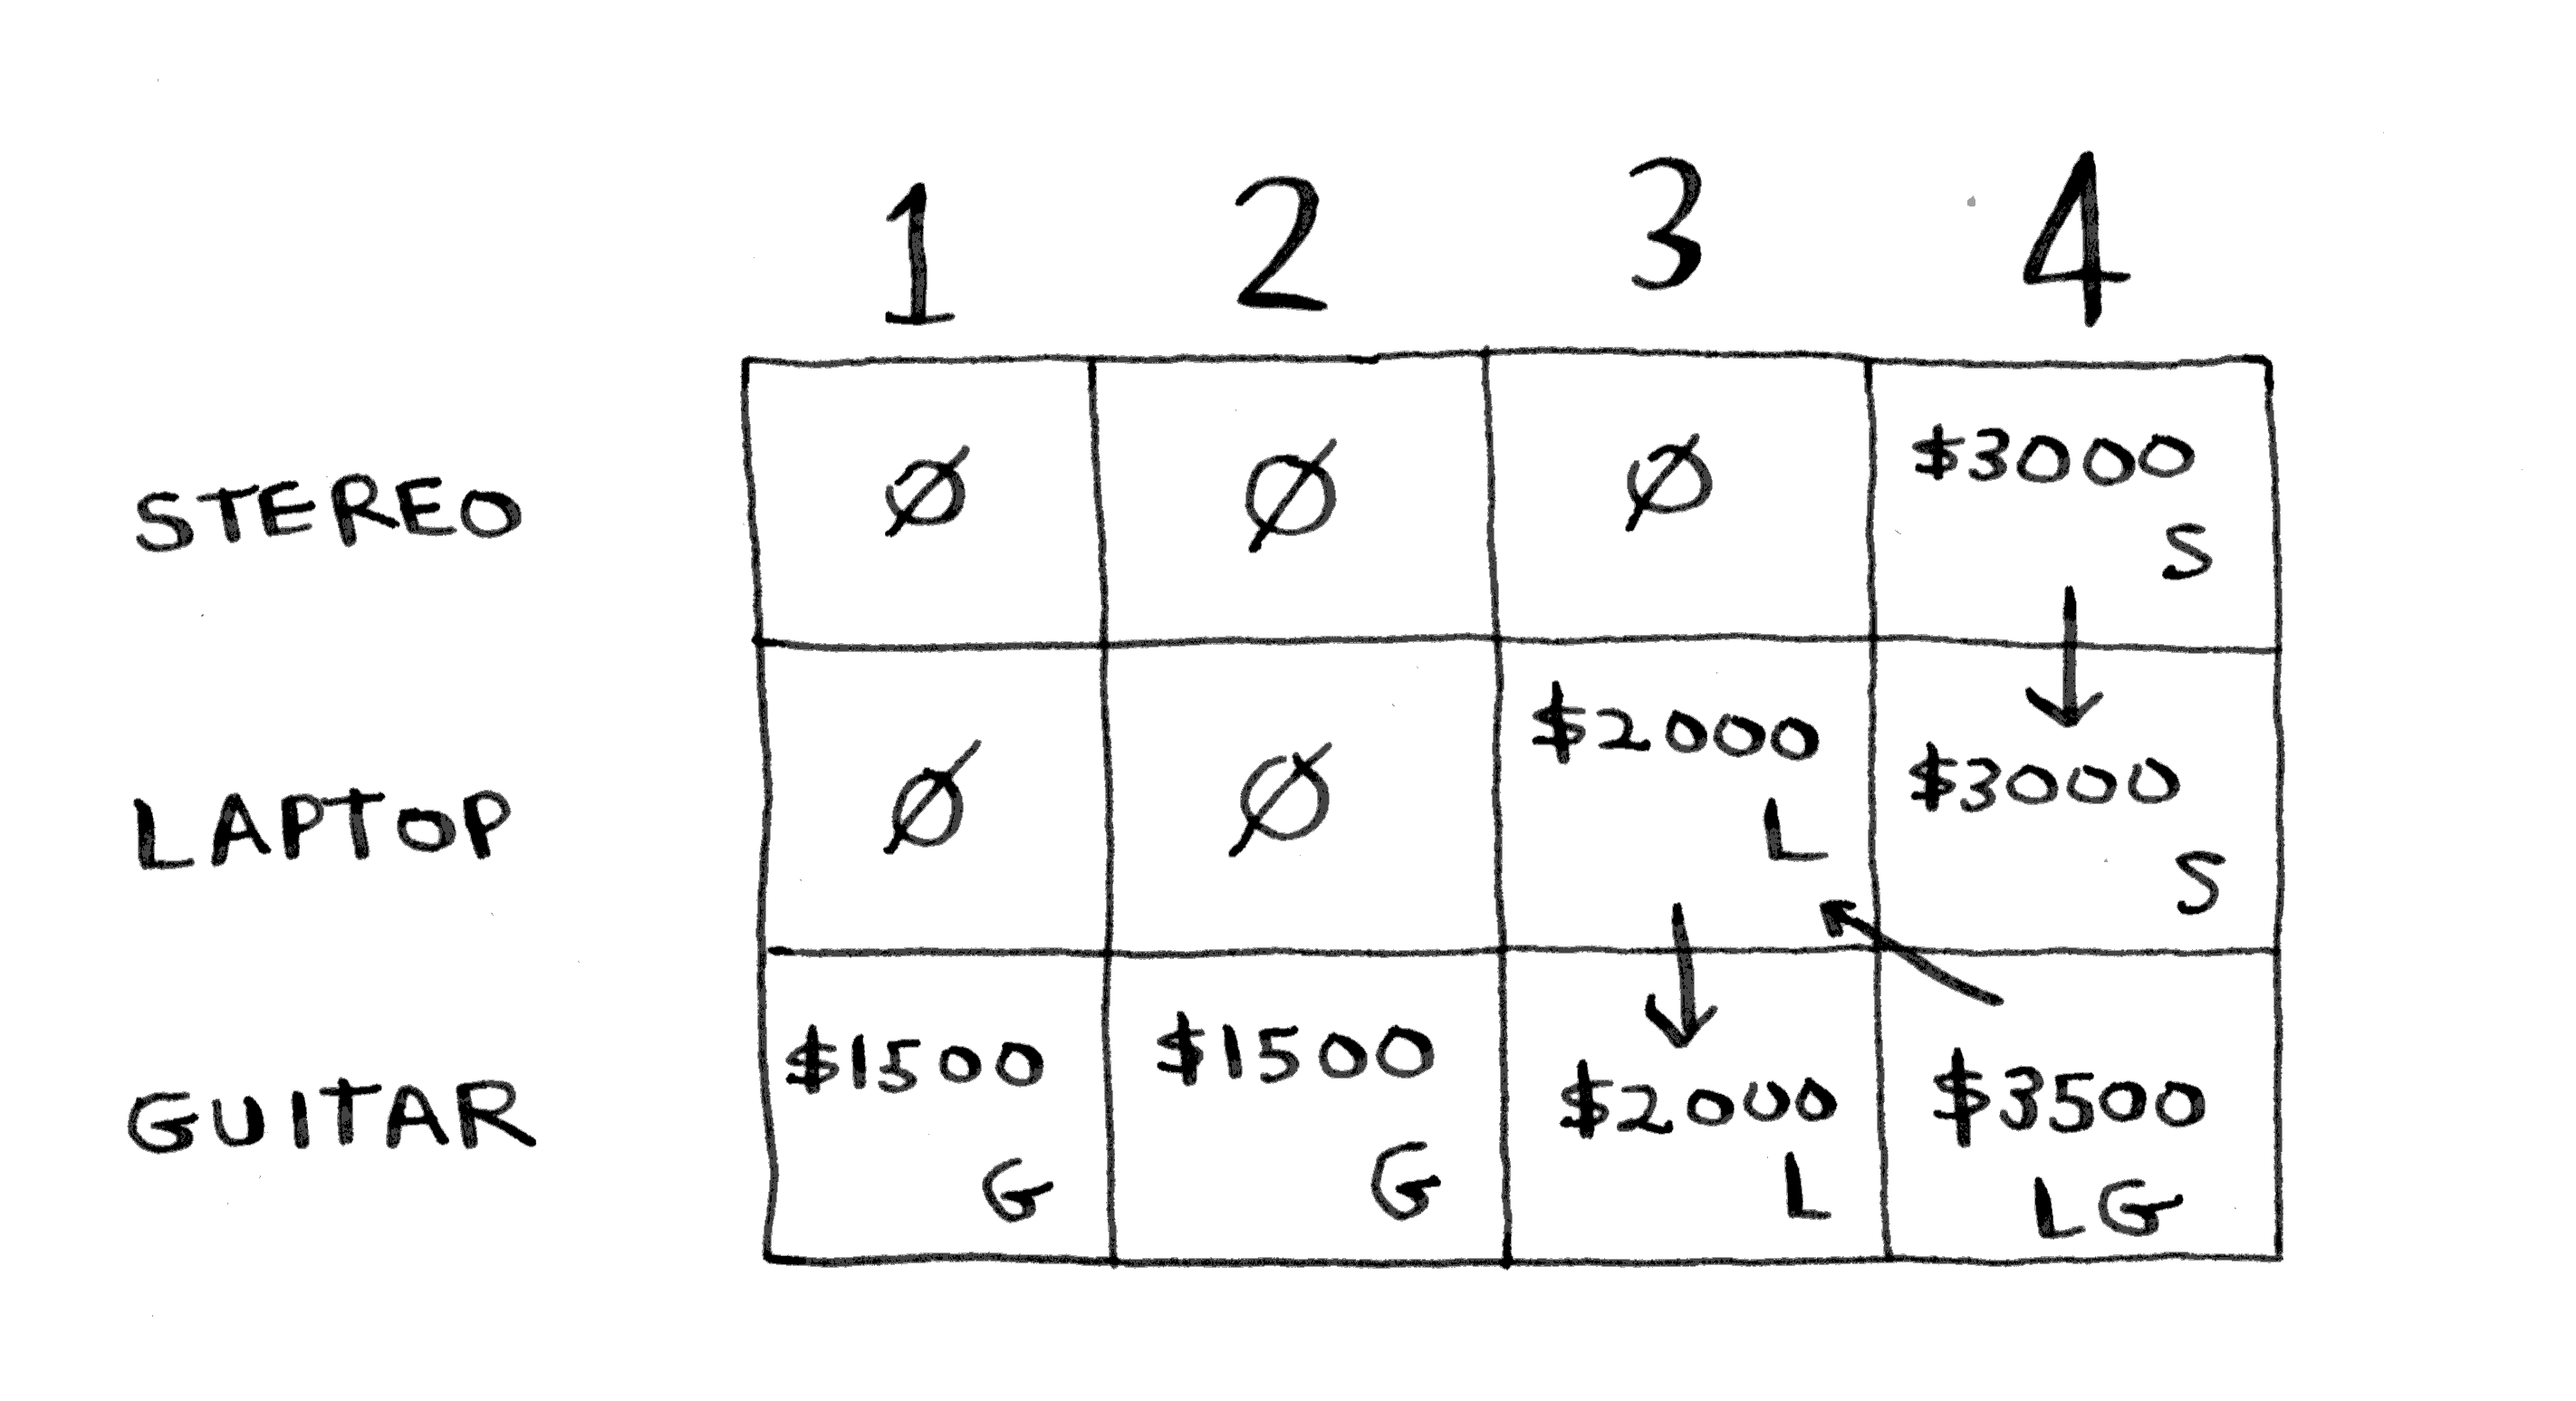 1 2 3 4
STEREO Ø Ø Ø $3000 S
LAPTOP Ø Ø $2000 L $3000 S
GUITAR $1500 G $1500 G $2000 L $3500 LG